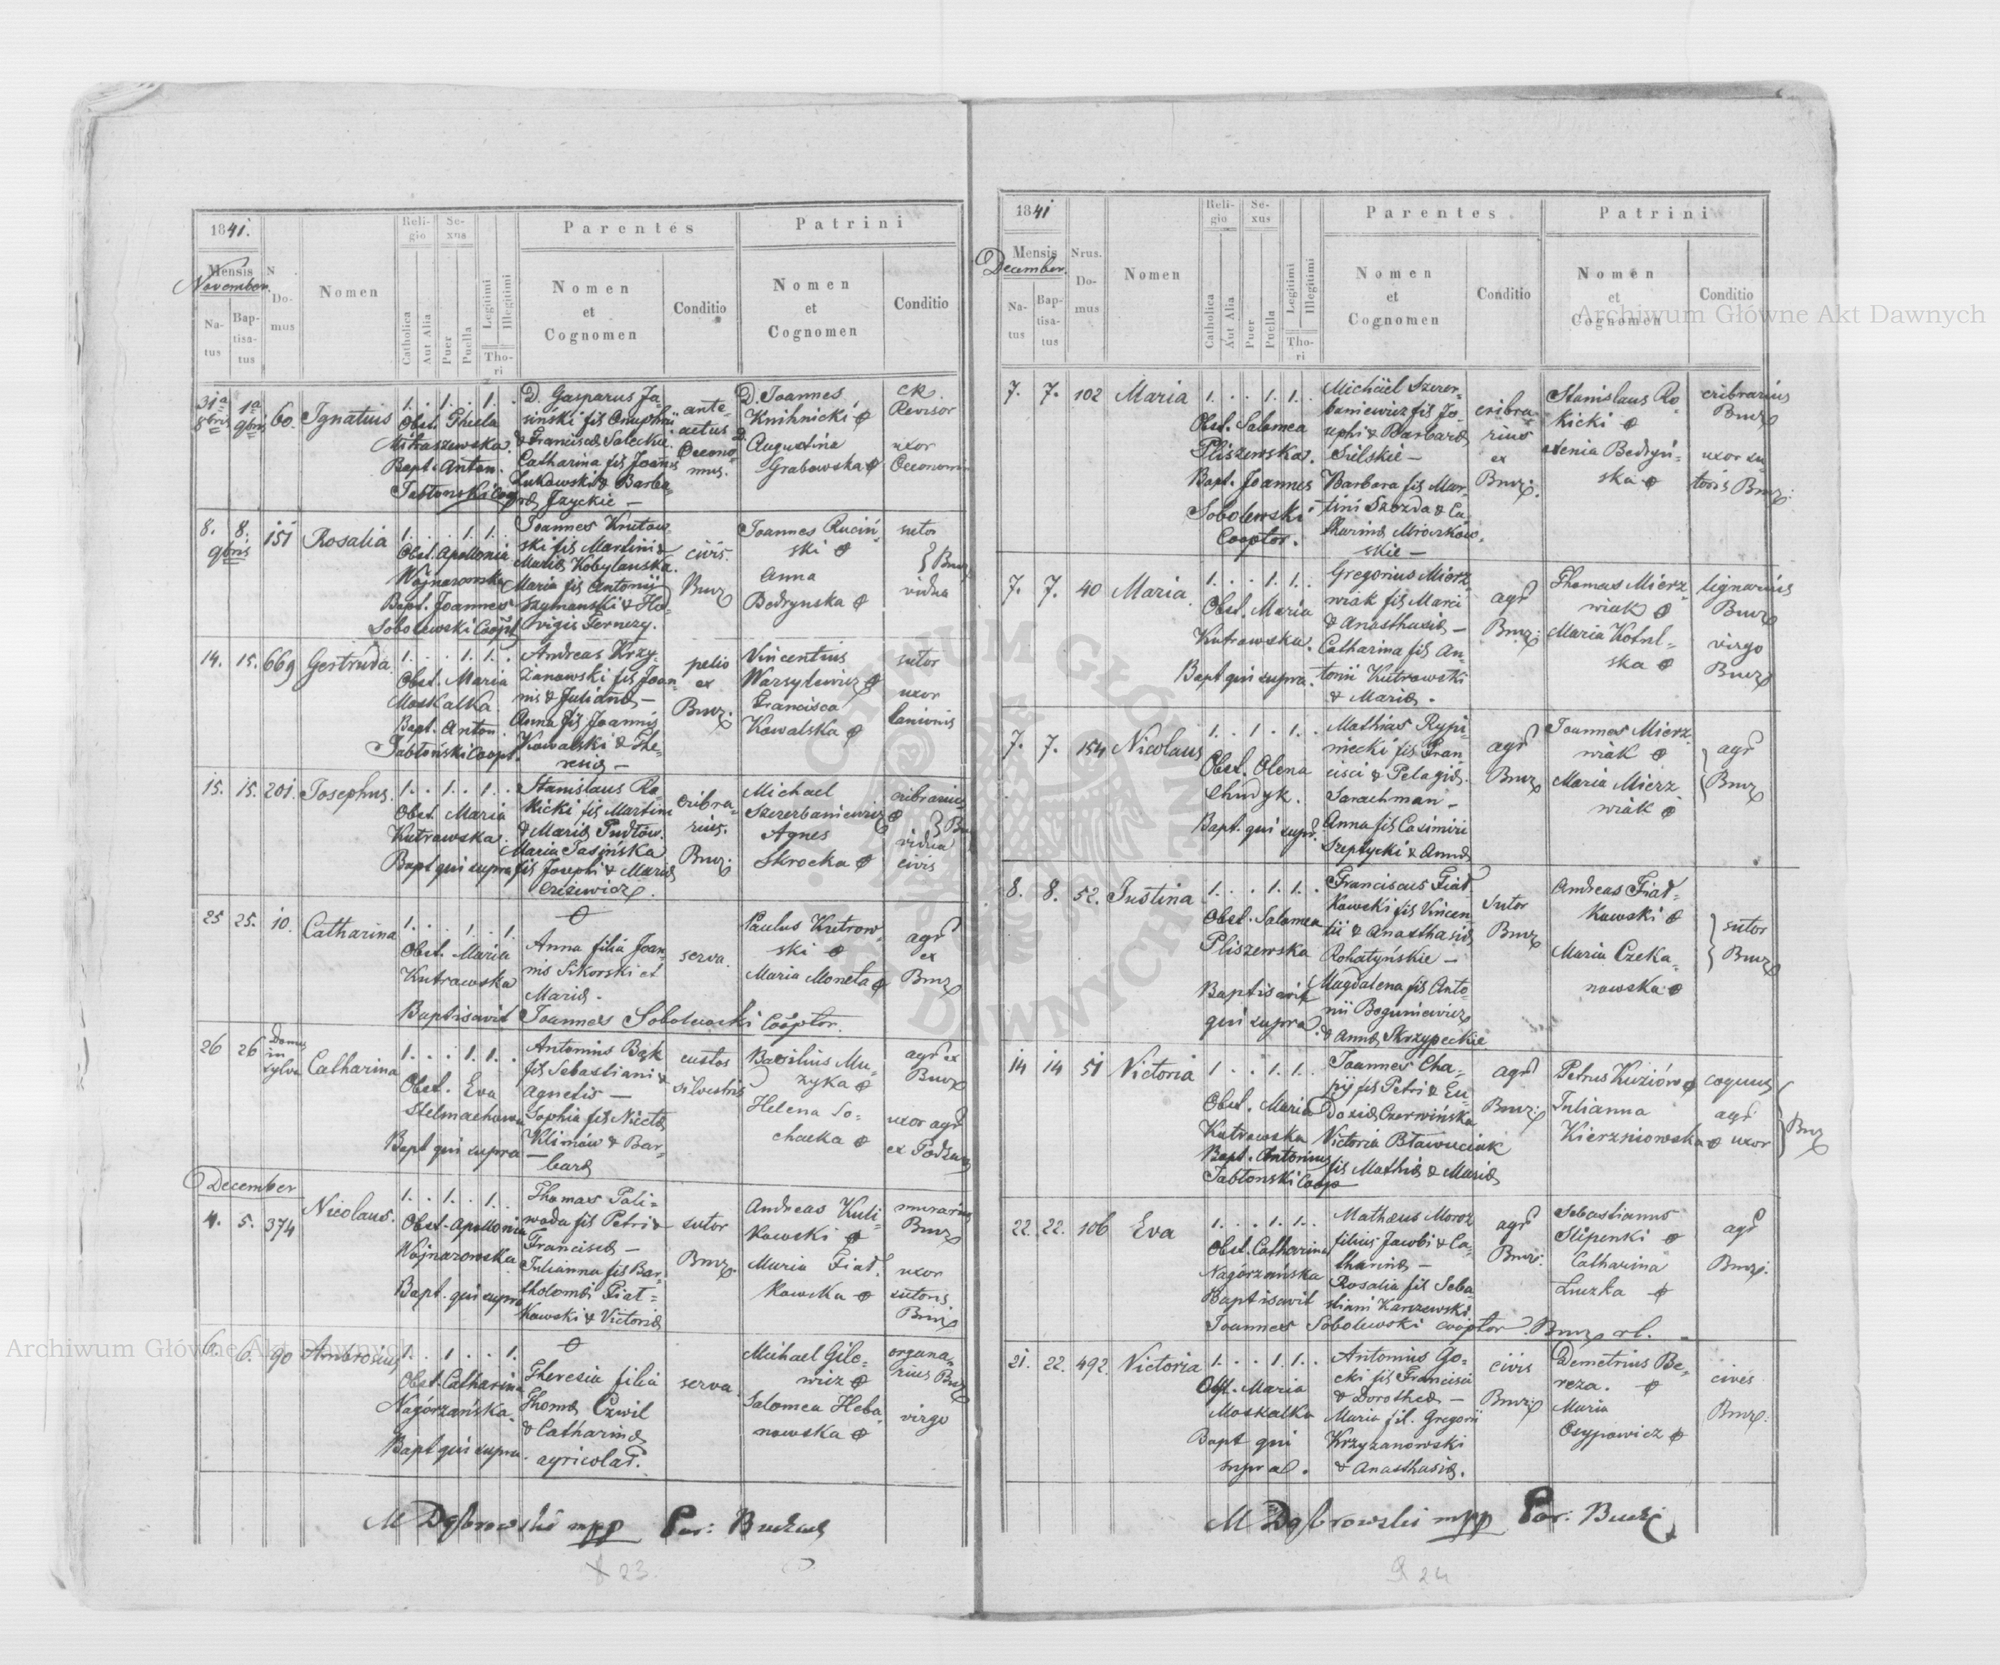 1841.
Mensis
November.
Natus
Baptisatus
N
Domus
Nomen
Religio
Catholica
Aut Alia
Sexus
Puer
Puella
Legitimi
Illegitimi
Thori
Parentes
Nomen
et
Cognomen
Conditio
Patrini
Nomen
et
Cognomen
Conditio
31a 8bris
1a 9bris
60.
Ignatius
1. . 1. . 1. .
Obst. Thecla
Mitraszewska.
Bapt. Anton.
Jabłonski Coop
D. Gasparus Ja-
siński fis Onuphrii
& Francisca Salecka.
Catharina fis Joannis
Łukowski & Barba-
ra Jzyckie —
ante-
actus
Oecono-
mus.
D. Joannes
Knihnicki
D. Augustina
Grabowska
CR.
Revisor
uxor
Oeconomi
8. 8.
9bris
151
Rosalia
1. . . 1. 1.
Obst. Apollonia
Wojnarowska
Bapt. Joannes
Sobolewski Coopt
Joannes Krutow
ski fis Martini &
Maria Kobylanska.
Maria fis Antonii
Szymanski & He-
dvigis Ternezy.
civis.
Brzez
Joannes Ruciń-
ski
Anna
Bedrynska
sutor
vidua
14. 15. 669
Gertruda
1. . . 1. 1. .
Obst. Maria
Moskalka.
Bapt. Anton
Jabłoński Coopt.
Andreas Krzy-
żanowski fis Joan-
nis & Juliana —
Anna fis Joannis
Kowalski & The-
resia —
pelio
ex
Vincentius
Warsylewicz
Francisca
Kowalska
sutor
uxor
lanionis
15. 15. 201.
Josephus.
1. . 1. . 1. .
Obst. Maria
Kutrowska.
Bapt qui supra
Stanislaus Ro-
kicki fis Martini
& Maria Pudłów.
Maria Jasińska
fis Josephi & Maria
cribra-
rius.
Michael
Szczerbaniewicz
Agnes
Skrocka
cribrarius
vidua
civis
25 25. 10.
Catharina
1. . . 1. . 1.
Obst. Maria
Kutrowska
Anna filia Joan-
nis Sikorski et
Maria.
serva.
Paulus Kutrow-
ski
Maria Moneta
agr
ex
Baptisavit Joannes Sobolewski Cooptor.
26 26
Domus in sylva
Catharina
1. . . 1. 1. .
Obst. Eva
Stelmachowa
Bapt qui supra
Antonius Bąk
fis Sebastiani &
Agnetis —
Sophia fis Niceta
Klimów & Bar-
bara
custos
silvestris
Basilius Mu-
zyka
Helena So-
chacka
agr ex
uxor agr
December
4. 5. 374
Nicolaus.
1. . 1. . 1. .
Obst. Apollonia
Wojnarowska
Bapt. qui supra
Thomas Pali-
woda fis Petri &
Francisca —
Julianna fis Bar-
tholomæ Fiat-
kowski & Victoria
sutor
Andreas Kuli-
kowski
Maria Fiat-
kowska
murarius
uxor
sutoris
6. 6. 90
Ambrosius
1. . 1 . . 1.
Obst. Catharina
Nagórzańska.
Bapt qui supra.
Theresia filia
Thoma Czwil
& Catharina
agricolar.
serva
Michael Gile-
wicz
Salomea Heba-
nowska
organa-
rius
virgo
M Dąbrowski mpp Par:
23.
1841
Mensis
December.
Natus
Baptisatus
Nrus.
Domus
Nomen
Religio
Catholica
Aut Alia
Sexus
Puer
Puella
Legitimi
Illegitimi
Thori
Parentes
Nomen
et
Cognomen
Conditio
Patrini
Nomen
et
Cognomen
Conditio
7. 7. 102
Maria
1. . . 1. 1. .
Obst. Salomea
Pliszewska.
Bapt. Joannes
Sobolewski
Cooptor.
Michäel Szczer-
baniewicz fis Jo-
sephi & Barbara
Barbara fis Mar-
tini Szozda & Ca-
tharina Mroczkow-
skie —
cribra-
rius
ex
Stanislaus Ro-
kicki
Xenia Bedryń-
ska
cribrarius
uxor su-
toris
7. 7. 40
Maria
1. . . 1. 1. .
Obst. Maria
Kutrowska.
Bapt qui supra.
Gregorius Mierz-
wiak fis Marci
& Anasthasia —
Catharina fis An-
tonii Kutrowski
& Maria.
agr
Thomas Mierz-
wiak
Maria Kotul-
ska
lignarius
virgo
7. 7. 154
Nicolaus
1. . 1 . 1. .
Obst. Olena
Chudyk.
Bapt. qui supr.
Mathias Rypi-
niecki fis Fran-
cisci & Pelagia
Sarachman —
Anna fis Casimiri
Szeptycki & Anna
agr
Joannes Mierz-
wiak
Maria Mierz-
wiak
agr
8. 8. 52.
Justina
1. . . 1. 1. .
Obst. Salomea
Pliszewska
Baptisavit
qui supra.
Franciscus Fiat-
kowski fis Vincen-
tii & Anasthasia
Rohatyńskie —
Magdalena fis Anto-
nii Boguniewicz
& Anna Skrzypeckie
Sutor
Andreas Fiat-
kowski
Maria Czeka-
nowska
sutor
14 14 51
Victoria
1 . . 1. 1. .
Obst. Maria
Kutrowska
Bapt. Antonius
Jabłonski Coop
Joannes Cha-
pij fis Petri & Eu-
doxia Czerwińska
Victoria Bławuciak
fis Mathia & Maria
agr
Petrus Kuziów
Julianna
Kierzniowska
coquus
agr
uxor
22. 22. 106
Eva
1. . . 1. 1. .
Obst. Catharina
Nagórzańska
Baptisavit
Mathæus Moroz
filius Jacobi & Ca-
tharina —
Rosalia fis Seba-
stiani Karczewski
agr
Sebastianus
Slipenski
Catharina
Łuczka
agr
Joannes Sobolewski cooptor
21. 22. 492
Victoria
1. . . 1. 1. .
Obst. Maria
Moskalka
Bapt qui
supra.
Antonius Go-
cki fis Francisci
& Dorothea —
Maria fil. Gregorii
Krzyzanowski
& Anasthasia.
civis
Demetrius Be-
reza.
Maria
Osypowicz
cives
M Dąbrowski mpp Par:
24
Archiwum Główne Akt Dawnych
Archiwum Główne Akt Dawnych
ARCHIWUM GŁÓWNE AKT DAWNYCH